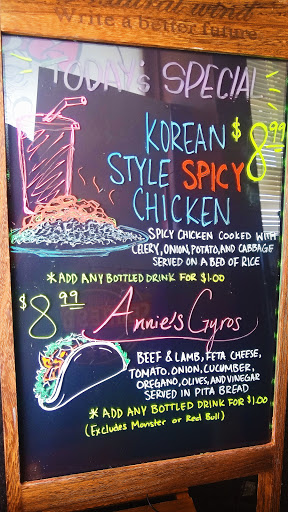 Write a better future
TODAY'S SPECIAL
KOREAN $8.99
STYLE SPICY
CHICKEN
SPICY CHICKEN COOKED WITH
CELERY, ONION, POTATO, AND CABBAGE
SERVED ON A BED OF RICE
*ADD ANY BOTTLED DRINK FOR $1.00
$8.99 Annie's Gyros
BEEF & LAMB, FETA CHEESE,
TOMATO, ONION, CUCUMBER,
OREGANO, OLIVES, AND VINEGAR
SERVED IN PITA BREAD
*ADD ANY BOTTLED DRINK FOR $1.00
(Excludes Monster or Red Bull)